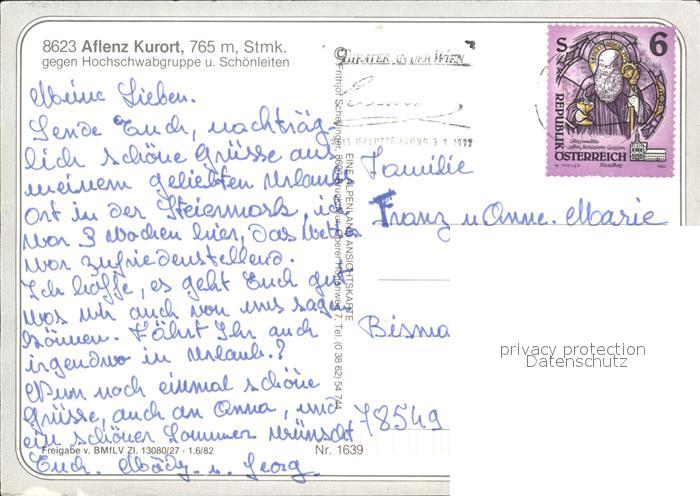 8623 Aflenz Kurort, 765 m, Stmk.
gegen Hochschwabgruppe u. Schönleiten
Meine Lieben.
Sende Euch, nachträg-
lich schöne Grüsse aus
meinem geliebten Urlaubs
Ort in der Steiermark, ich
war 3 Wochen hier, das Wetter
war zufriedenstellend.
Ich hoffe, es geht Euch gut
was wir auch von uns sagen
können. Fährt Ihr auch
irgendwo in Urlaub?
Nun noch einmal schöne
Grüsse, auch an Anna, und
ein schöner Sommer wünscht
Euch. u. Georg.
Freigabe v. BMfLV Zl. 13080/27 - 1.6/82
Nr. 1639
EINE ALPENLAND ANSICHTSKARTE
7, Tel. (0 38 62) 54 744
THEATER AN DER WIEN
S 6
REPUBLIK
ÖSTERREICH
Familie
Franz u Anne. Marie
Bisma
78549
privacy protection
Datenschutz